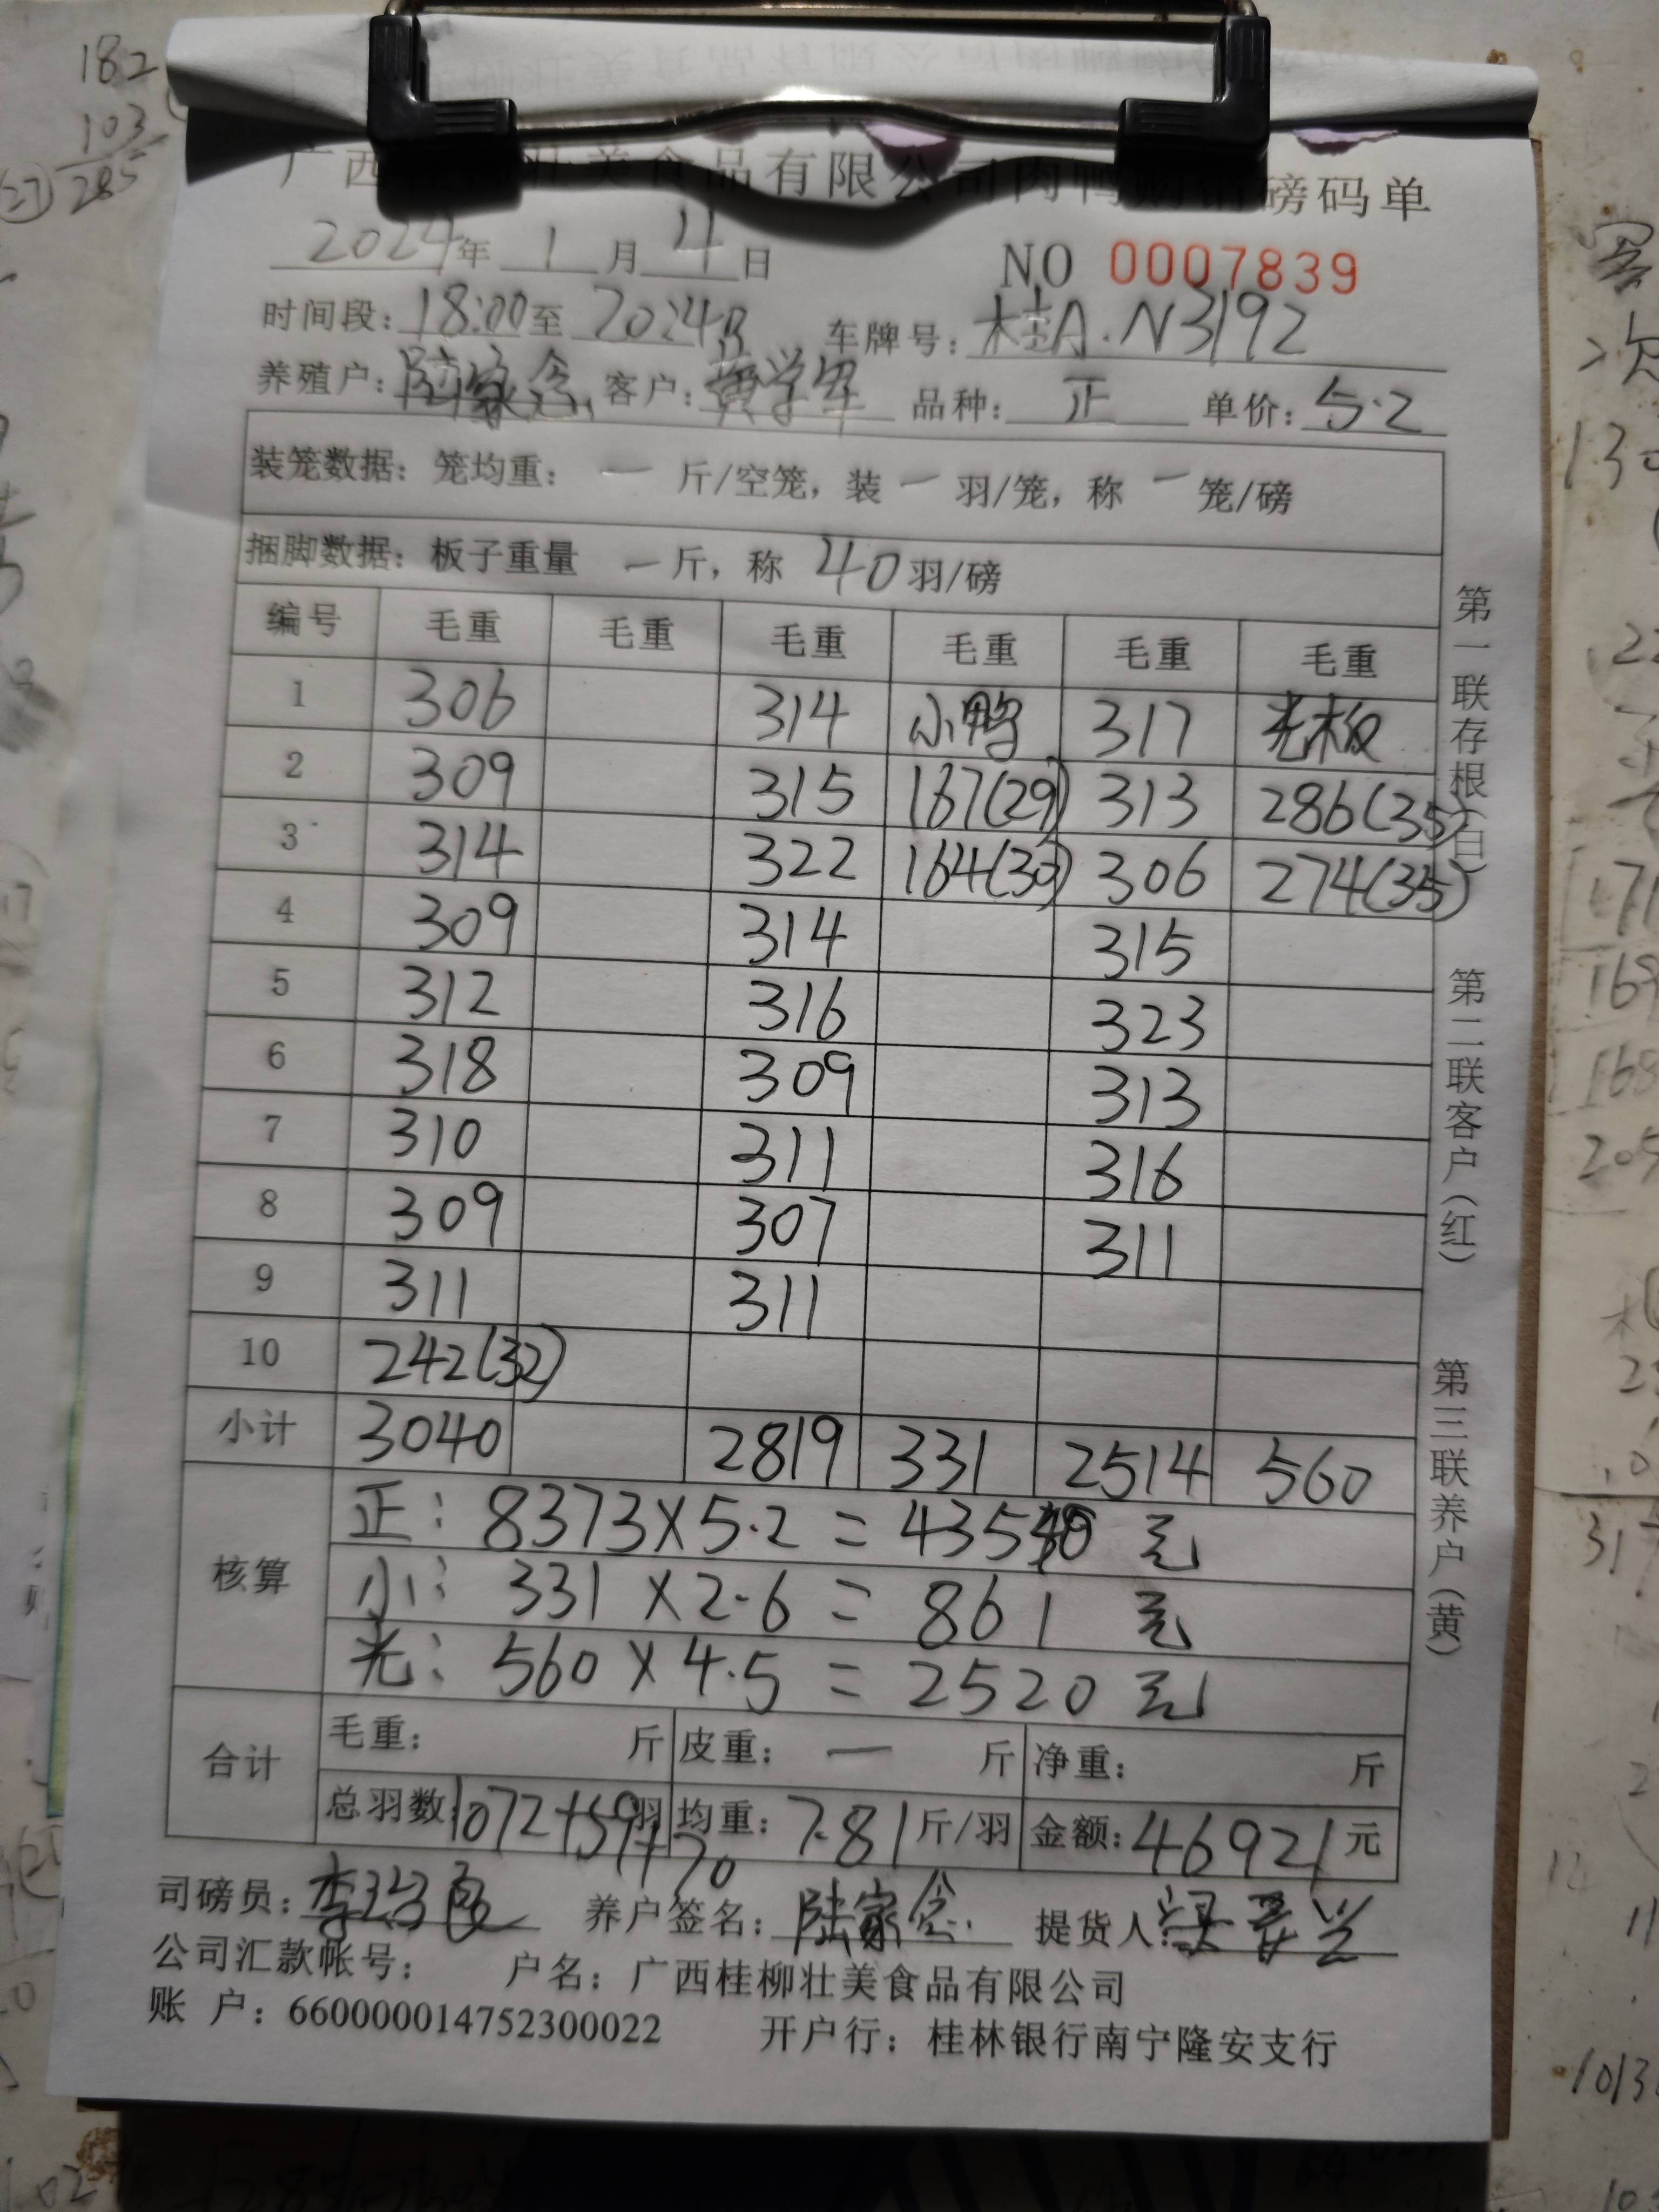 182
103
285
广西 壮美食品有限公司肉鸭购销磅码单
2024年 1 月 4 日 NO 0007839
时间段:18:00至 20:24 车牌号:桂A·N3192
养殖户:陆家念 客户:黄学军 品种:正 单价:5.2
装笼数据:笼均重: 一 斤/空笼,装 一 羽/笼,称 一 笼/磅
捆脚数据:板子重量 一 斤,称 40 羽/磅
编号 毛重 毛重 毛重 毛重 毛重 毛重
1 306 314 小鸭 317 光板
2 309 315 167(29) 313 286(35)
3 314 322 164(30) 306 274(35)
4 309 314 315
5 312 316 323
6 318 309 313
7 310 311 316
8 309 307 311
9 311 311
10 242(32)
小计 3040 2819 331 2514 560
核算
正: 8373×5.2 = 43540 元
小: 331 ×2.6 = 861 元
光: 560 × 4.5 = 2520 元
合计
毛重: 斤 皮重: 一 斤 净重: 斤
总羽数:1072+59+70羽 均重:7.81斤/羽 金额:46921元
司磅员: 养户签名:陆家念 提货人:
公司汇款帐号: 户名:广西桂柳壮美食品有限公司
账 户:660000014752300022 开户行:桂林银行南宁隆安支行
第一联存根(白)
第二联客户(红)
第三联养户(黄)